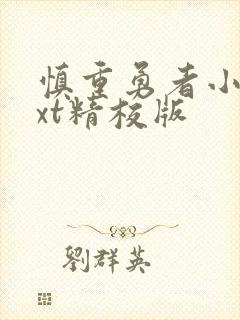 慎重勇者小
xt精校版
劉群英